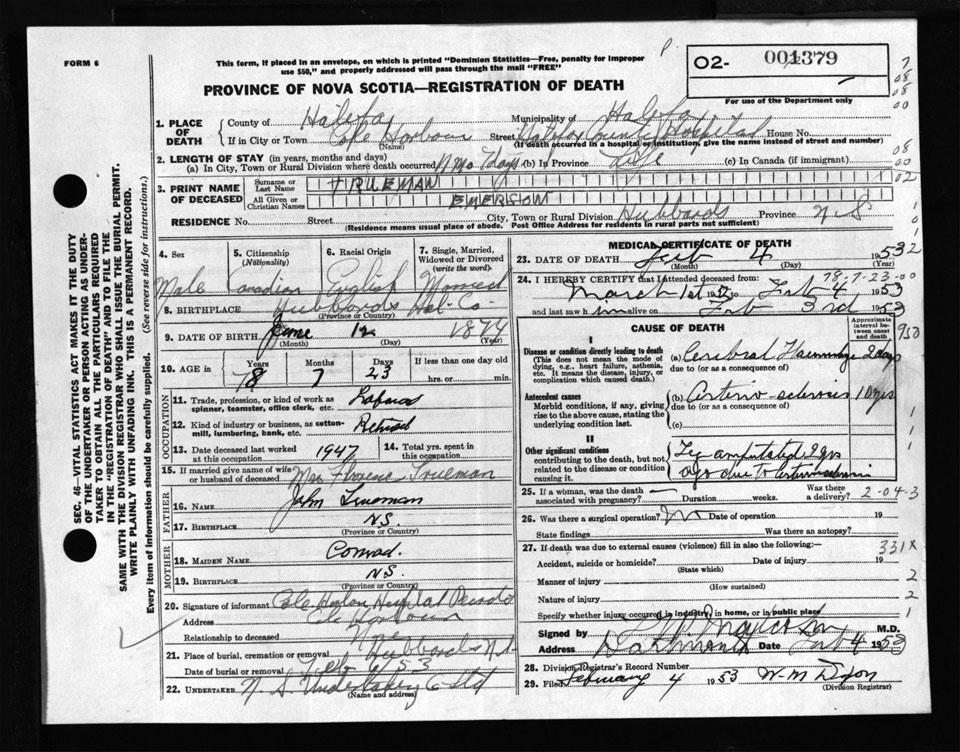 FORM 6
This form, if placed in an envelope, on which is printed "Dominion Statistics—Free, penalty for improper
use $50," and properly addressed will pass through the mail "FREE"
PROVINCE OF NOVA SCOTIA—REGISTRATION OF DEATH
02- 001379
For use of the Department only
1. PLACE OF DEATH
County of Halifax Municipality of Halifax
If in City or Town Cole Harbour Street Halifax County Hospital House No.
(Name) (If death occurred in a hospital or institution, give the name instead of street and number)
2. LENGTH OF STAY (in years, months and days)
(a) In City, Town or Rural Division where death occurred 11 mo 7 days (b) In Province Life (c) In Canada (if immigrant)
3. PRINT NAME OF DECEASED
Surname or Last Name TRUEMAN
All Given or Christian Names EMERSON
RESIDENCE No. Street City, Town or Rural Division Hubbards Province N.S
(Residence means usual place of abode. Post Office Address for residents in rural parts not sufficient)
4. Sex
Male
5. Citizenship
(Nationality)
Canadian
6. Racial Origin
English
7. Single, Married, Widowed or Divorced
(write the word)
Married
8. BIRTHPLACE Hubbards Hal. Co.
(Province or Country)
9. DATE OF BIRTH June 12 1874
(Month) (Day) (Year)
10. AGE in Years Months Days If less than one day old
78 7 23 hrs. or min.
OCCUPATION
11. Trade, profession, or kind of work as
spinner, teamster, office clerk, etc.
12. Kind of industry or business, as cotton-
mill, lumbering, bank, etc. Retired
13. Date deceased last worked at this occupation 1947
14. Total yrs. spent in this occupation
15. If married give name of wife
or husband of deceased Mrs Florence Trueman
FATHER
16. Name John Trueman
17. Birthplace N.S.
(Province or Country)
MOTHER
18. MAIDEN NAME Conrad.
19. BIRTHPLACE N.S.
(Province or Country)
20. Signature of informant Hospital Records
Address Cole Harbour
Relationship to deceased None
21. Place of burial, cremation or removal Hubbards N.S.
Date of burial or removal Feb 6 53
22. UNDERTAKER N. S. Undertaking Co Ltd
(Name and address)
MEDICAL CERTIFICATE OF DEATH
23. DATE OF DEATH Feb 4 1953
(Month) (Day) (Year)
24. I HEREBY CERTIFY that I attended deceased from:
78-7-23-00
March 1st 1952 to Feb 4 1953
and last saw him alive on Feb 3rd 1953
CAUSE OF DEATH
Approximate interval between onset and death
I
Disease or condition directly leading to death
(This does not mean the mode of dying, e.g., heart failure, asthenia, etc. It means the disease, injury, or complication which caused death.)
(a) Cerebral Haemorrhage 2 days
due to (or as a consequence)
Antecedent causes
Morbid conditions, if any, giving rise to the above cause, stating the underlying condition last.
(b) Arterio-sclerosis 10 yrs
due to (or as a consequence)
(c)
II
Other significant conditions
contributing to the death, but not related to the disease or condition causing it.
Leg amputated 2 yrs
ago due to Arteriosclerosis
25. If a woman, was the death Was there
associated with pregnancy? Duration weeks. a delivery? 2-04-3
26. Was there a surgical operation? No Date of operation 19
State findings Was there an autopsy?
27. If death was due to external causes (violence) fill in also the following:—
331X
Accident, suicide or homicide? Date of injury 19
(State which)
Manner of injury
(How sustained)
Nature of injury
Specify whether injury occurred in industry, in home, or in public place
Signed by M.D.
Dartmouth Date Feb 4 1953
28. Division Registrar's Record Number
29. Filed February 4 1953 W. M Dixon
(Division Registrar)
SEC. 46—VITAL STATISTICS ACT MAKES IT THE DUTY
OF THE UNDERTAKER OR PERSON ACTING AS UNDER-
TAKER TO OBTAIN ALL THE PARTICULARS REQUIRED
IN THE "REGISTRATION OF DEATH" AND TO FILE THE
SAME WITH THE DIVISION REGISTRAR WHO SHALL ISSUE THE BURIAL PERMIT.
WRITE PLAINLY WITH UNFADING INK. THIS IS A PERMANENT RECORD.
Every item of information should be carefully supplied. (See reverse side for instructions.)